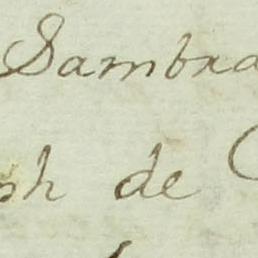 Sambra
sh de